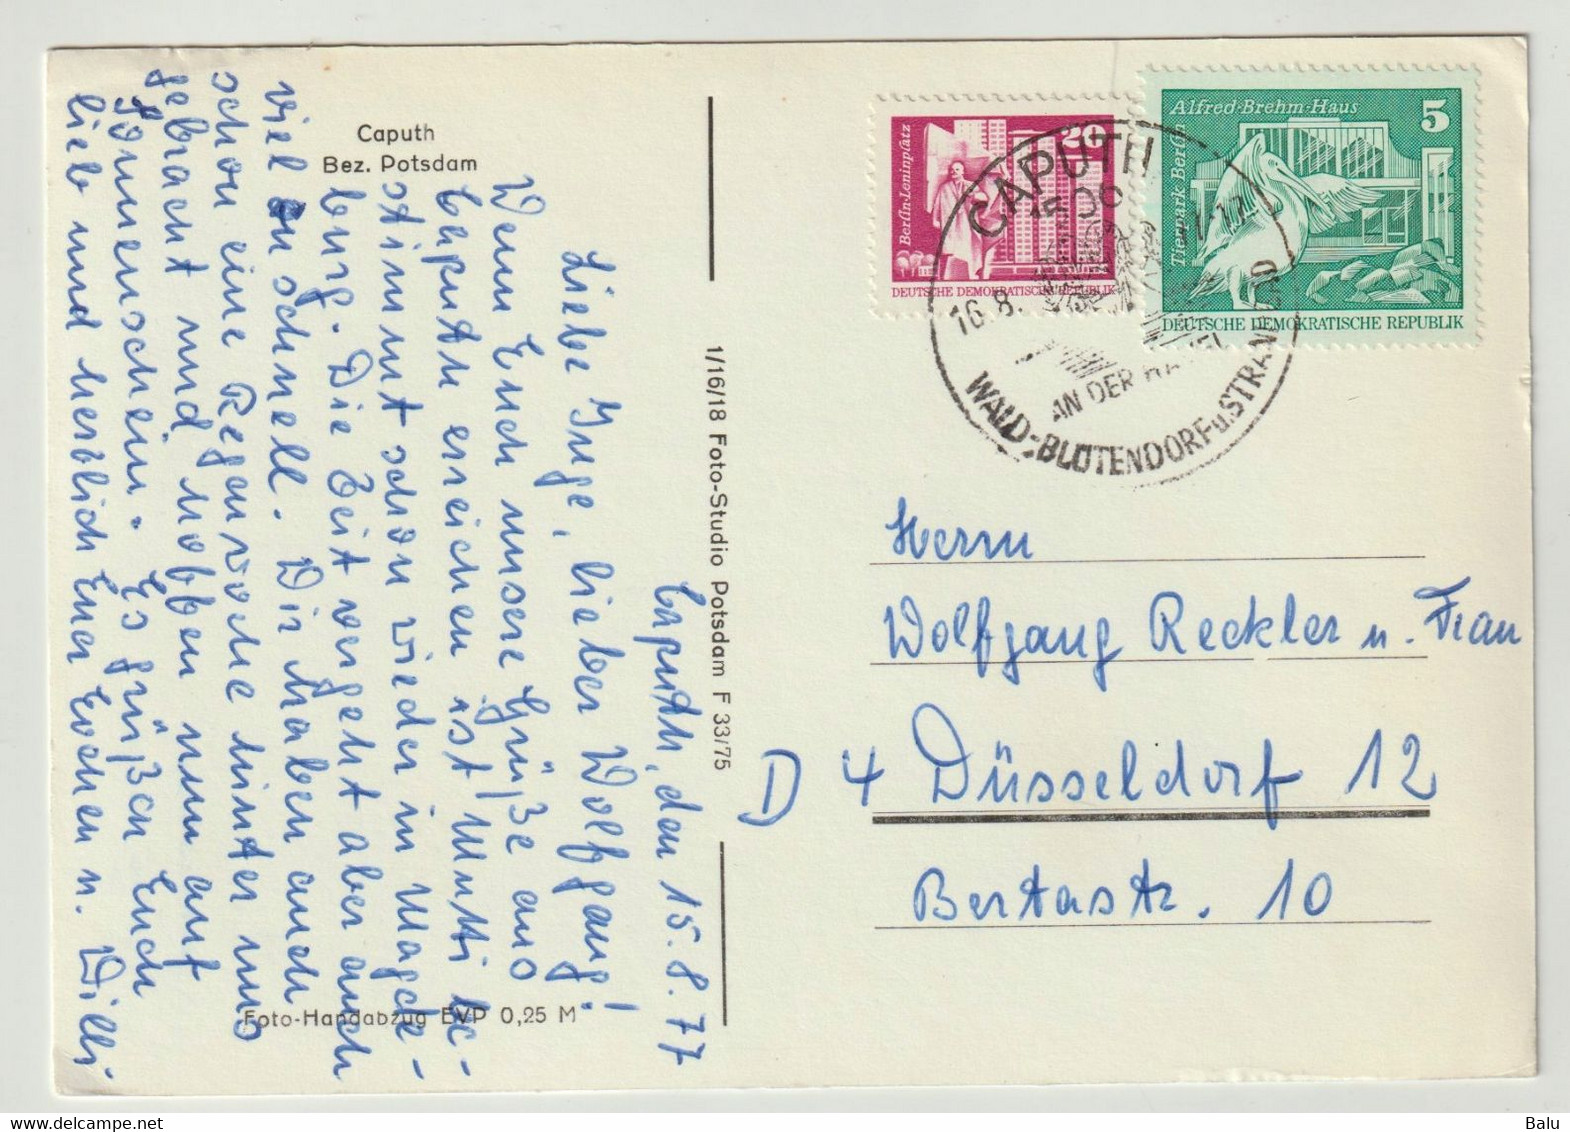 Caputh
Bez. Potsdam
Caputh, den 15.8.77
Liebe Inge, lieber Wolfgang!
Wenn Euch unsere Grüße aus
Caputh erreichen ist Mutti be-
stimmt schon wieder in Magde-
burg. Die Zeit vergeht aber auch
viel zu schnell. Wir haben auch
schon eine Regenwoche hinter uns
gebracht und hoffen nun auf
Sonnenschein. Es grüßen Euch
lieb und herzlich Eure u. Willi
1/16/18 Foto-Studio Potsdam F 33/75
Foto-Handabzug EVP 0,25 M
20
Berlin-Leninplatz
DEUTSCHE DEMOKRATISCHE REPUBLIK
Alfred-Brehm-Haus 5
Tierpark Berlin
DEUTSCHE DEMOKRATISCHE REPUBLIK
CAPUTH
16.8.
AN DER
WALD-BLÜTENDORF u. STRANDBAD
Herrn
Wolfgang Reckler u. Frau
D 4 Düsseldorf 12
Bertastr. 10
Balu